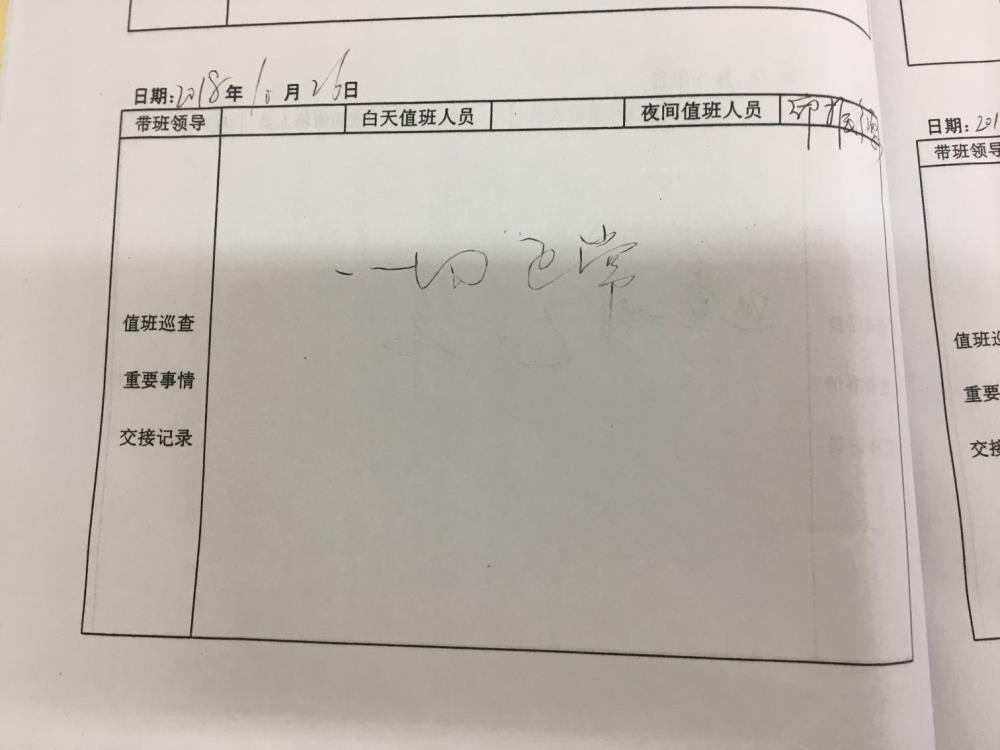 日期:2018年10月26日
带班领导 白天值班人员 夜间值班人员
一切正常
值班巡查
重要事情
交接记录
日期:201
带班领导
值班巡
重要
交接